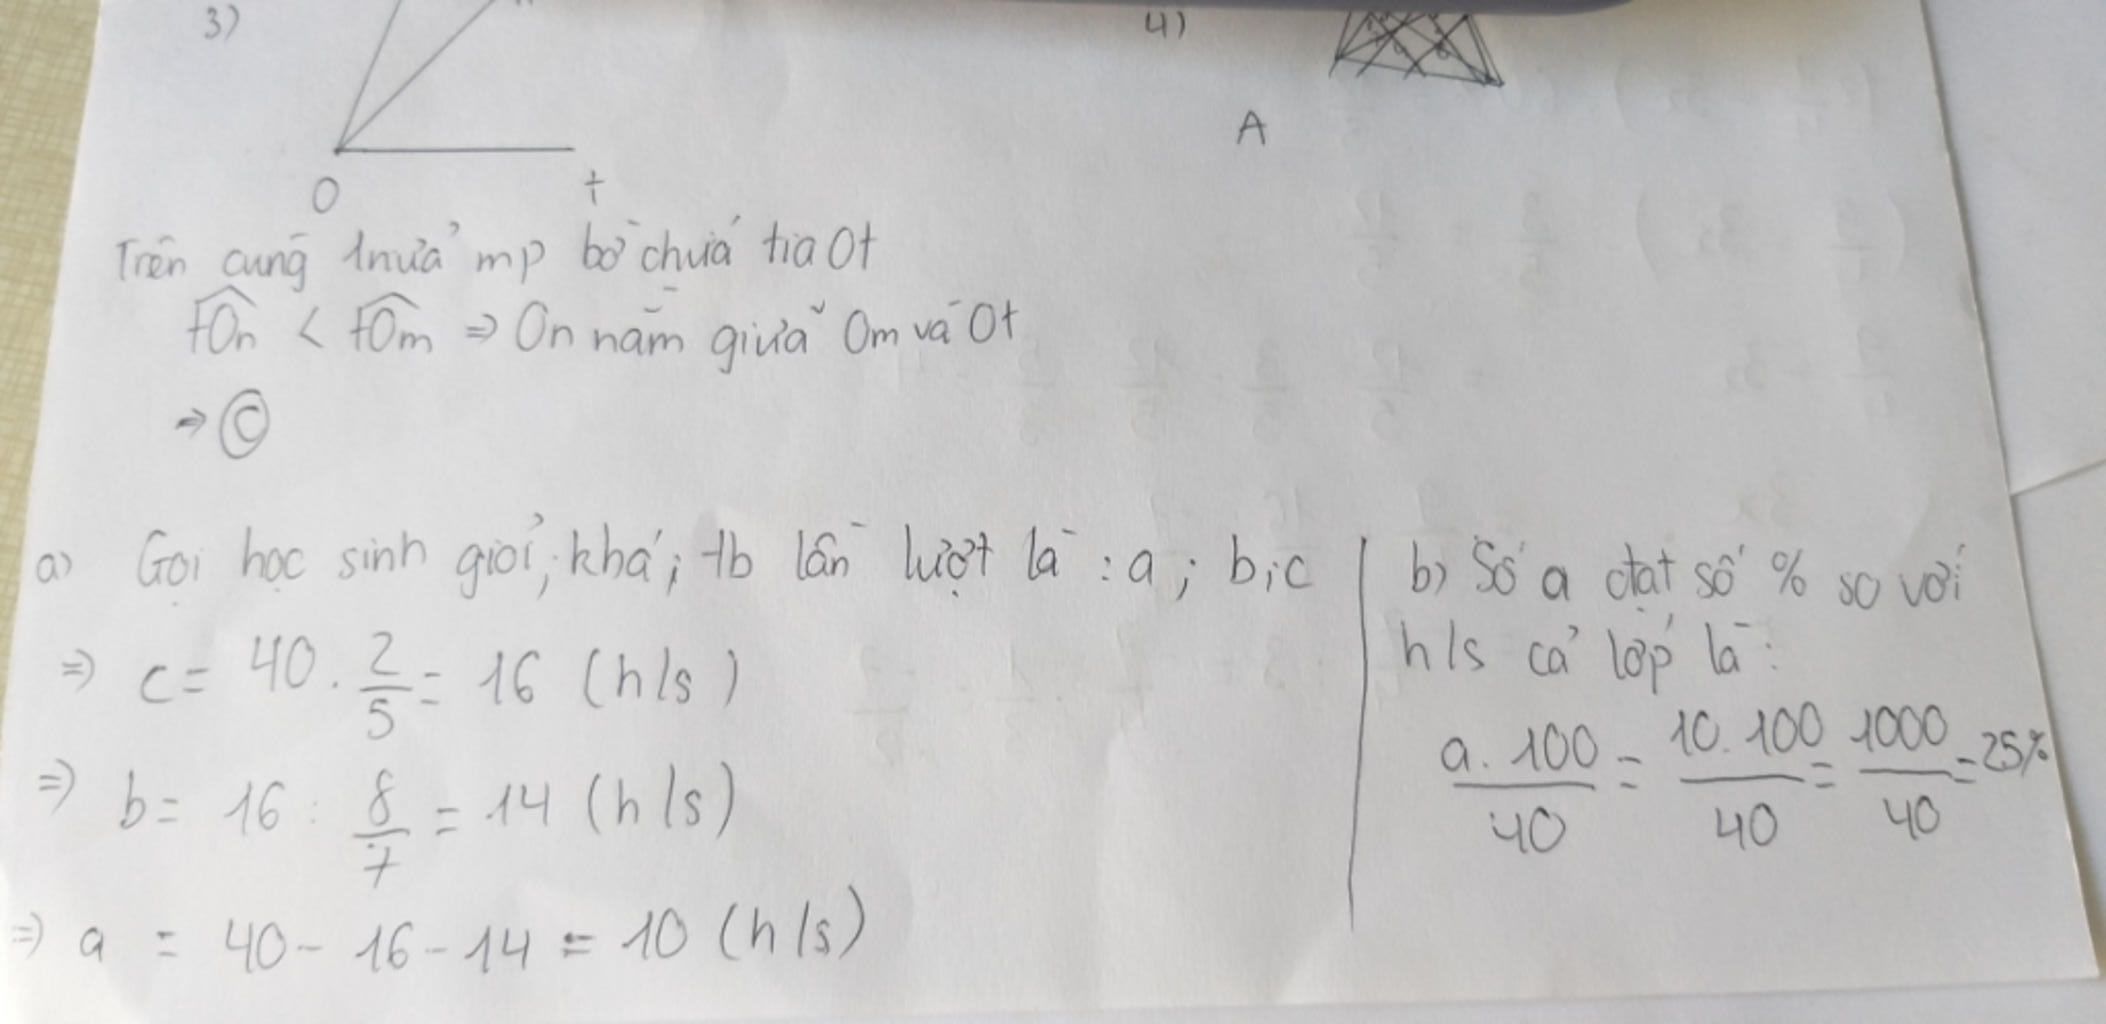 3)
4)
A
O t
Trên cùng 1 nửa mp bờ chứa tia Ot
tOn < tOm => On nằm giữa Om và Ot
=> C
a) Gọi học sinh giỏi; khá; tb lần lượt là : a; b; c
=> c = 40 . 2/5 = 16 (h/s)
=> b = 16 : 8/7 = 14 (h/s)
=> a = 40 - 16 - 14 = 10 (h/s)
b) Số a đạt số % so với
h/s cả lớp là :
a . 100/40 = 10 . 100/40 = 1000/40 = 25%